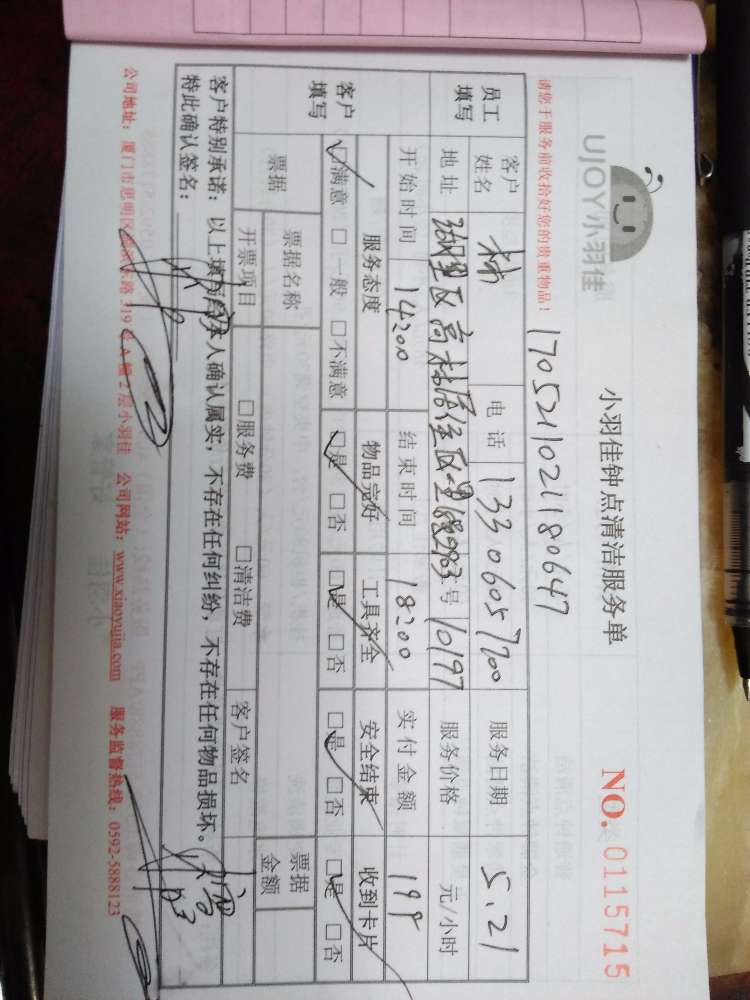 UJOY小羽佳
小羽佳钟点清洁服务单
NO.0115715
请您于服务前收拾好您的贵重物品！
1705211021180647
员工填写
客户姓名 林 电话 13306057200 服务日期 5.21
地址 湖里区高林居住区 号 服务价格 元/小时
开始时间 14:00 结束时间 18:00 实付金额 199
客户填写
服务态度 物品完好 工具齐全 安全结束 收到卡片
☑满意 □一般 □不满意 ☑是 □否 ☑是 □否 ☑是 □否 ☑是 □否
票据
票据名称 票据金额
开票项目 □服务费 □清洁费 客户签名
客户特别承诺：以上填写 本人确认属实，不存在任何纠纷，不存在任何物品损坏。
特此确认签名：
公司地址：厦门市思明区 路319号A幢2层小羽佳 公司网站：www.xiaoyujia.com 服务监督热线：0592-5888123